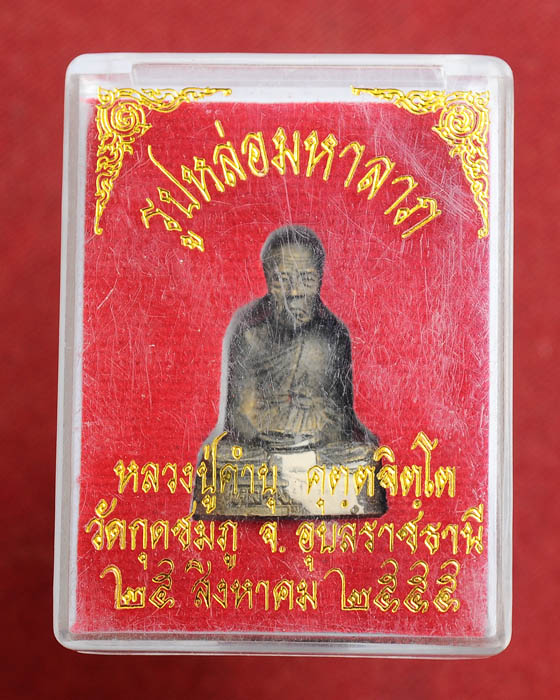 รูปหล่อมหาลาภ
หลวงปู่คำบุ คุตฺตจิตฺโต
วัดกุดชมภู จ. อุบลราชธานี
๒๕ สิงหาคม ๒๕๕๕